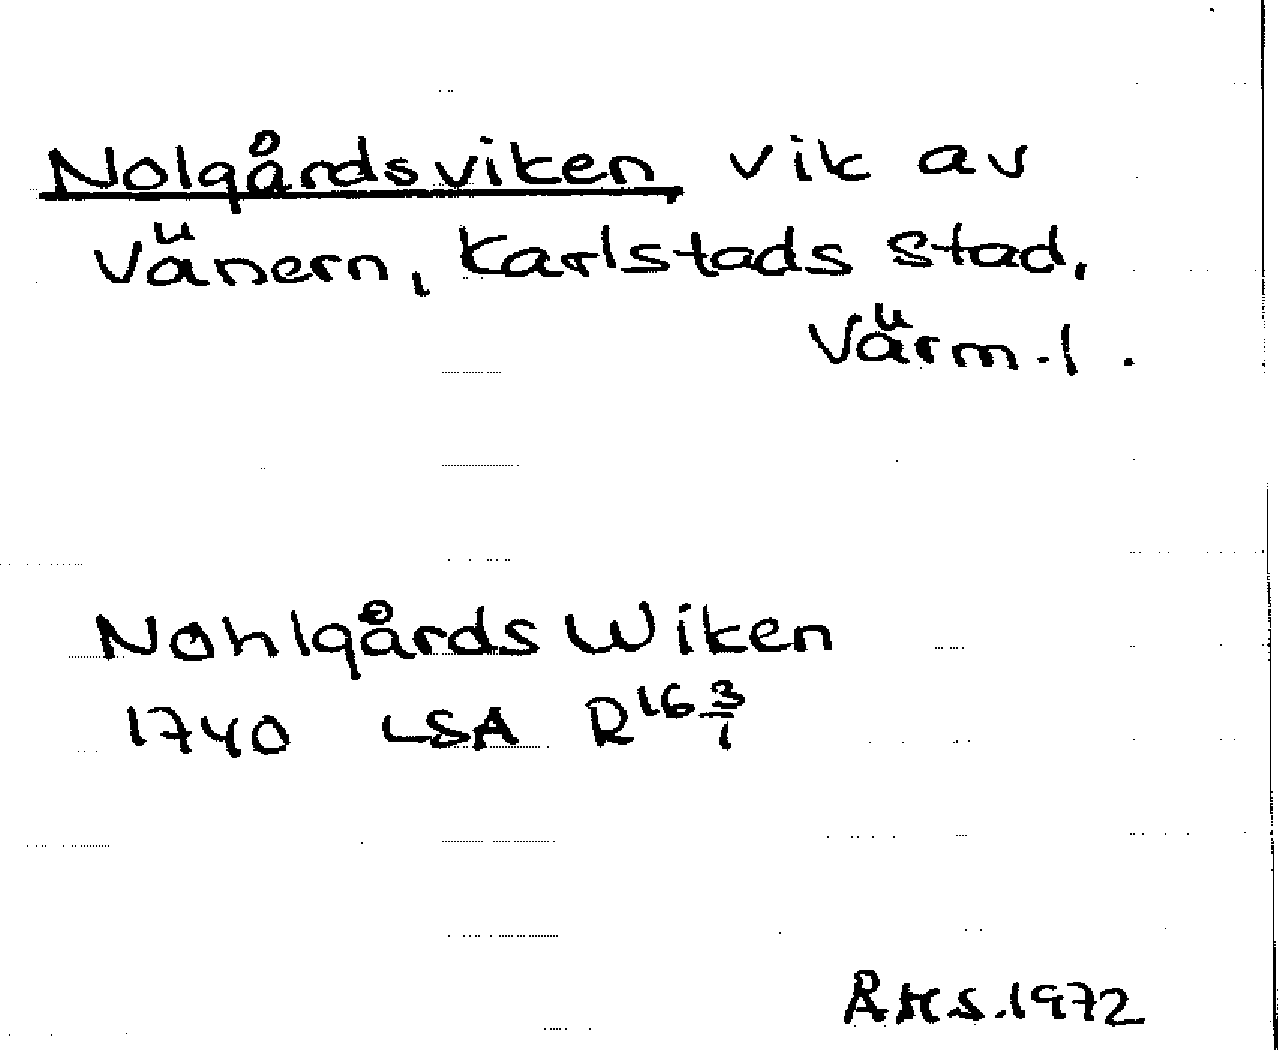 Nolgårdsviken vik av
Vänern, Karlstads stad,
Värm.l.
Nohlgårds Wiken
1740 LSA R16 3/1
ÅHS.1972